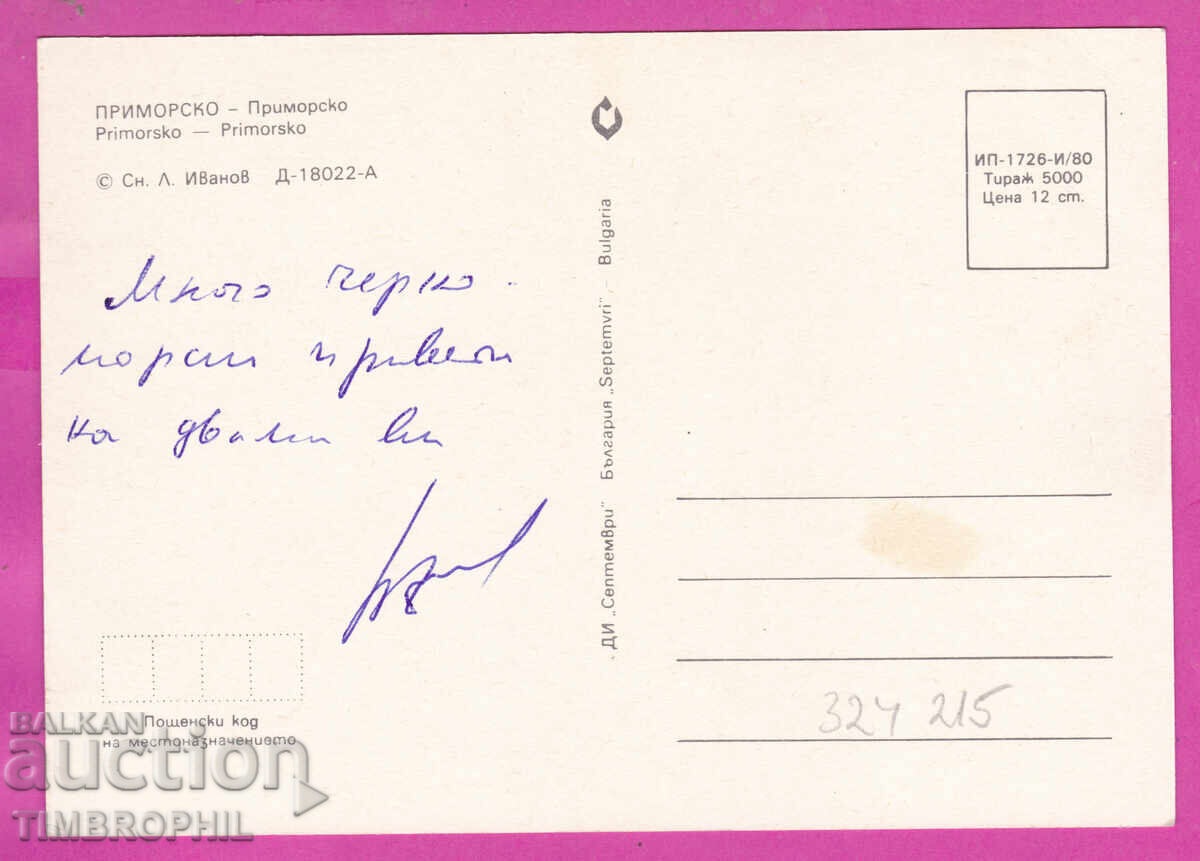 ПРИМОРСКО – Приморско
Primorsko — Primorsko
© Сн. Л. Иванов Д-18022-А
Много черно-
морски привети
на двама ви
ДИ „Септември" България „Septemvri" – Bulgaria
ИП-1726-И/80
Тираж 5000
Цена 12 ст.
324 215
Пощенски код
на местоназначението
BALKAN
auction
TIMBROPHIL